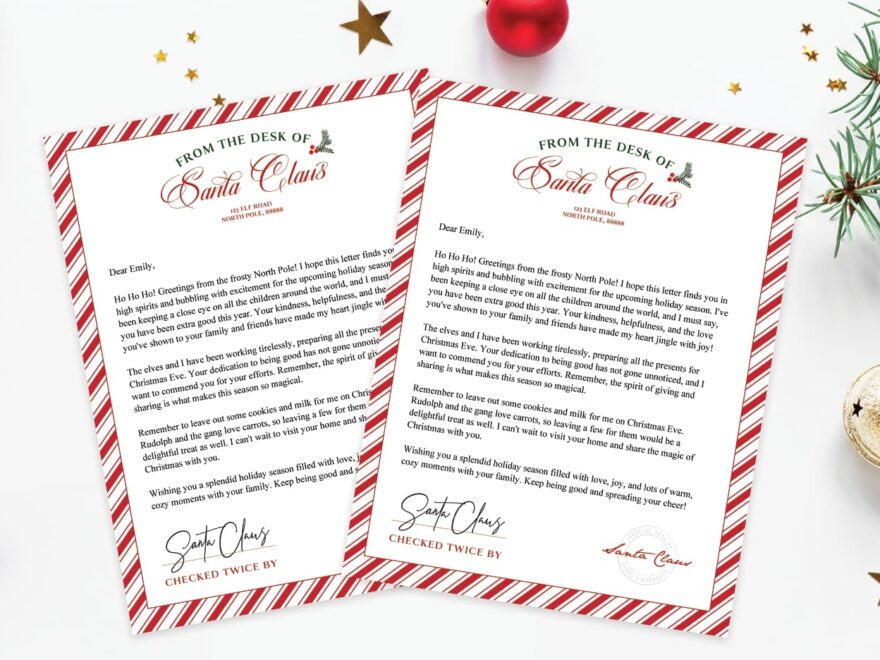 FROM THE DESK OF
Santa Claus
123 ELF ROAD
NORTH POLE, 88888
Dear Emily,
Ho Ho Ho! Greetings from the frosty North Pole! I hope this letter finds you
high spirits and bubbling with excitement for the upcoming holiday season
been keeping a close eye on all the children around the world, and I must
you have been extra good this year. Your kindness, helpfulness, and the
you've shown to your family and friends have made my heart jingle wi
The elves and I have been working tirelessly, preparing all the presents
Christmas Eve. Your dedication to being good has not gone unnotic
want to commend you for your efforts. Remember, the spirit of giv
sharing is what makes this season so magical.
Remember to leave out some cookies and milk for me on Chris
Rudolph and the gang love carrots, so leaving a few for them
delightful treat as well. I can't wait to visit your home and sh
Christmas with you.
Wishing you a splendid holiday season filled with love, jo
cozy moments with your family. Keep being good and s
Santa Claus
CHECKED TWICE BY
FROM THE DESK OF
Santa Claus
123 ELF ROAD
NORTH POLE, 88888
Dear Emily,
Ho Ho Ho! Greetings from the frosty North Pole! I hope this letter finds you in
high spirits and bubbling with excitement for the upcoming holiday season. I've
been keeping a close eye on all the children around the world, and I must say,
you have been extra good this year. Your kindness, helpfulness, and the love
you've shown to your family and friends have made my heart jingle with joy!
The elves and I have been working tirelessly, preparing all the presents for
Christmas Eve. Your dedication to being good has not gone unnoticed, and I
want to commend you for your efforts. Remember, the spirit of giving and
sharing is what makes this season so magical.
Remember to leave out some cookies and milk for me on Christmas Eve.
Rudolph and the gang love carrots, so leaving a few for them would be a
delightful treat as well. I can't wait to visit your home and share the magic of
Christmas with you.
Wishing you a splendid holiday season filled with love, joy, and lots of warm,
cozy moments with your family. Keep being good and spreading your cheer!
Santa Claus
CHECKED TWICE BY
Santa Claus